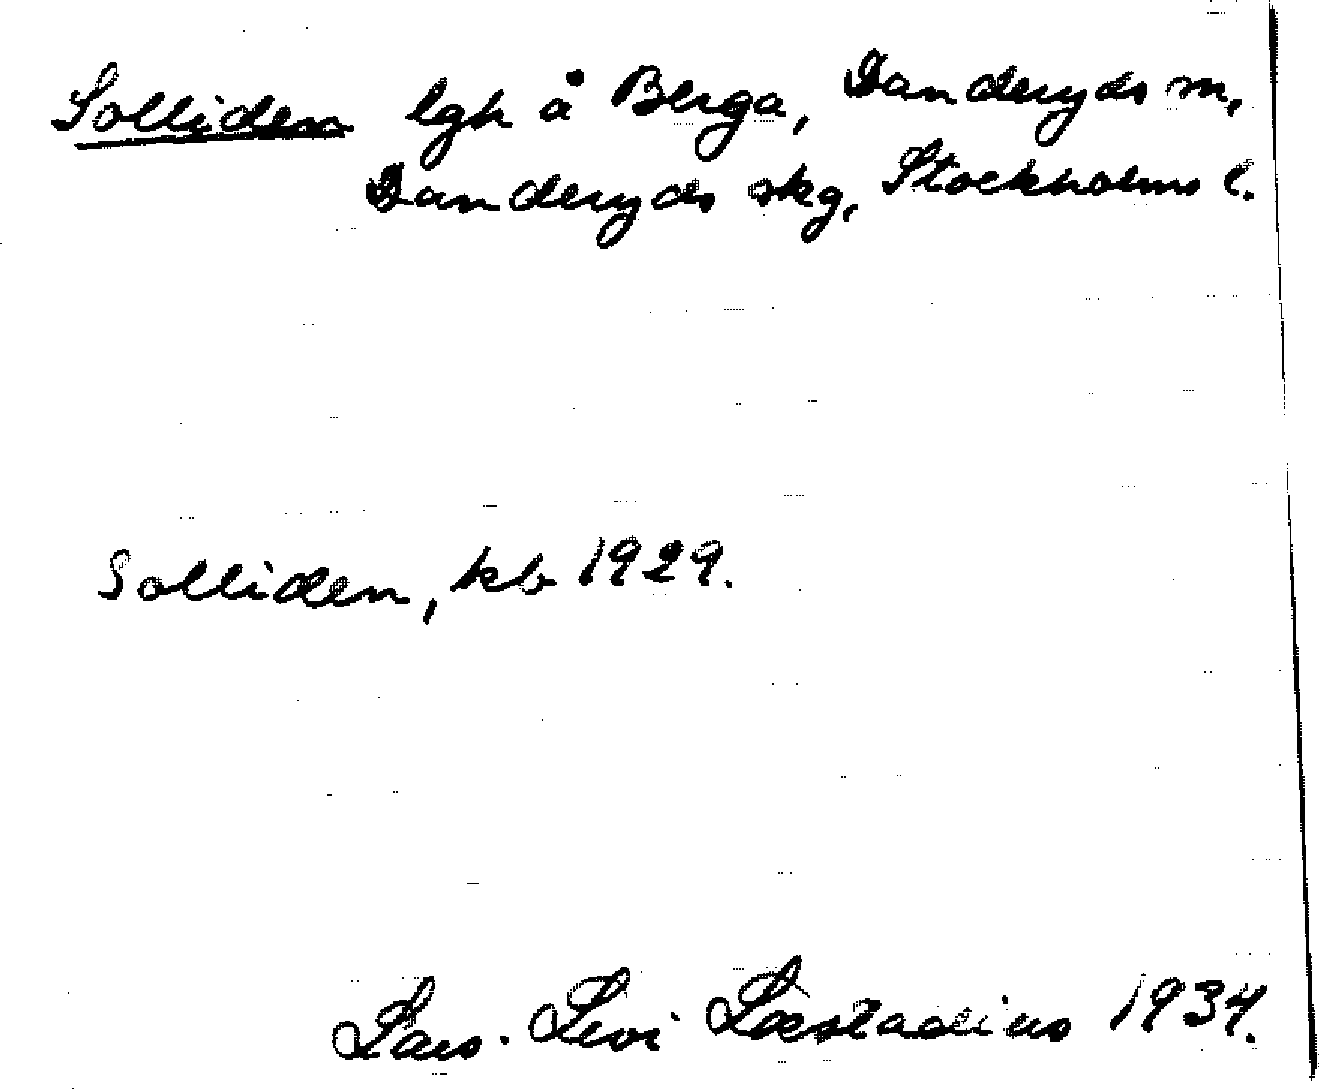 Solliden lgh å Berga, Danderyds m,
Danderyds skg, Stockholms l.
Solliden, kb 1929.
Lars-Levi Læstadius 1934.